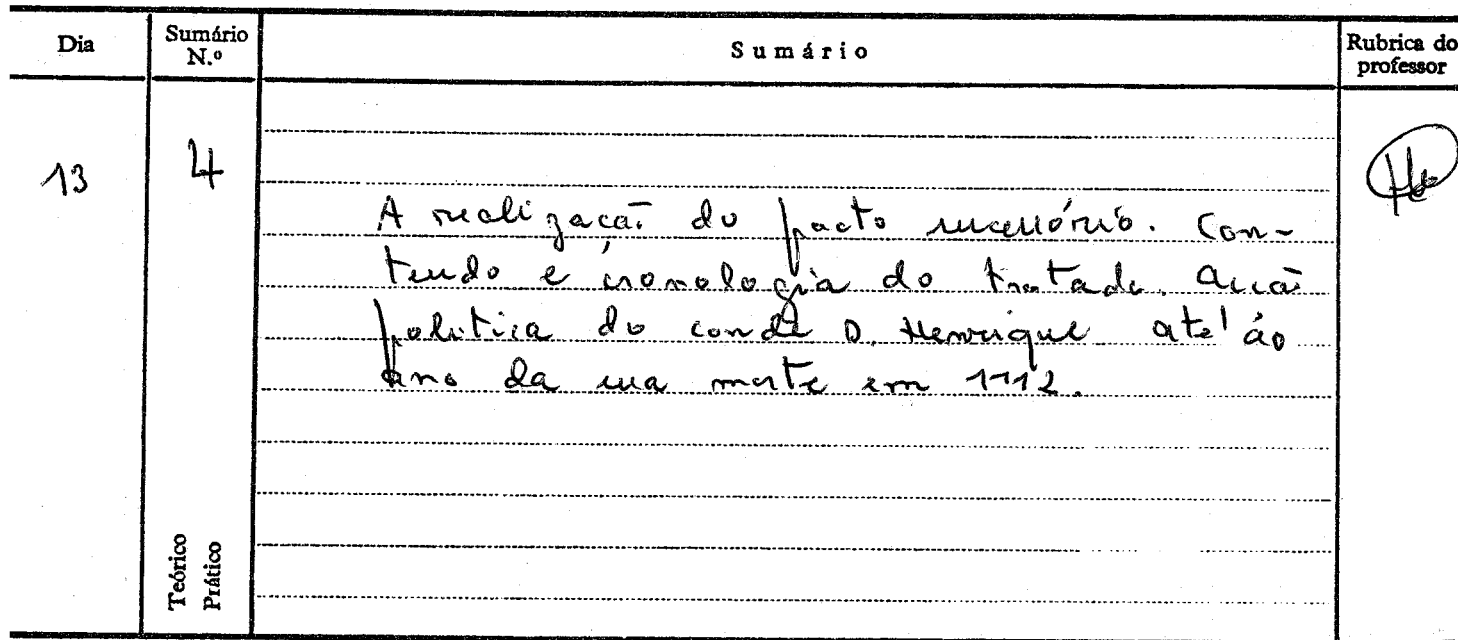 Dia Sumário N.º Sumário Rubrica do professor
13 4
A realização do pacto sucessório. Con-
teudo e cronologia do tratado. Acção
política do conde D. Henrique até ao
ano da sua morte em 1112.
Teórico
Prático